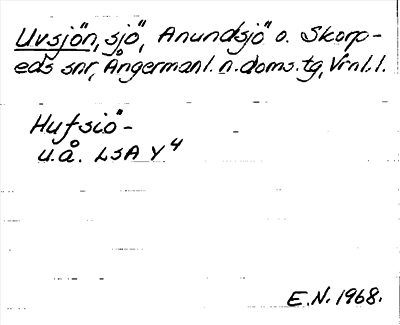 Uvsjön, sjö, Anundsjö o. Skorp-
eds snr, Ångermanl. n. doms. tg, Vrnl. l.
Hufsiö-
u.å. LSA Y4
E.N. 1968.